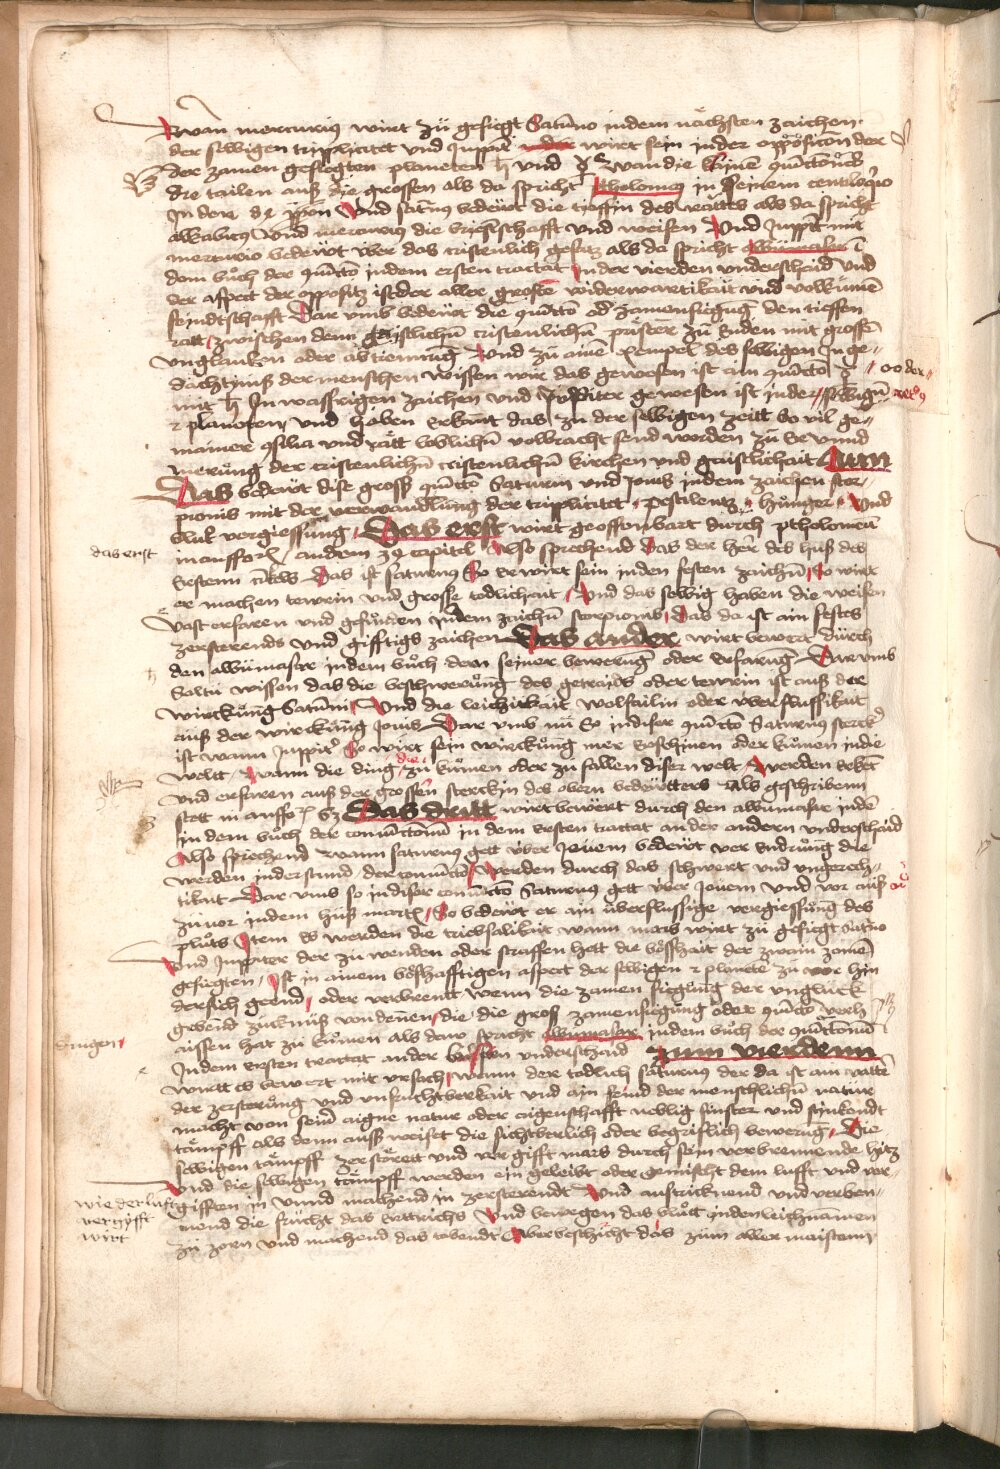 wan mercurius wirt zů gefiegt Saturno indem nächsten zaichen
der selbigen triplicitet vnd Juppiter wirt sein in der opposicion der
der zamen gefiegten planeten ♄ vnd ☿ wan die
die tailen auß die grossen als da spricht ptholomeus in seinem centilogio
In dem Vnd saturnus bedeüt die tieffin des rattes als da spricht
alkabicius Vnd mercurius die briefschafft vnd weisen Vnd Juppiter mit
mercurio bedeüt vber das cristenlich gesetz als da spricht albumasar in
dem bůch der in dem ersten tractat in der vierden vnderschaid vnd
der aspect der oppositz ist der aller groste widerwartikait vnd volkumen
feindtschafft Dar vmb bedeüt die od zamenfiegung den tieffen
ratt zwischen denn gaistlichen cristenlichen priester zů enden mit grossem
vnglauben oder abtrennung Vnd zů ainem exempel des selbigen In ge-
dächtnuß der menschen wissen wir das gewesen ist ain
mit ♄ In wassrigen zaichen vnd Juppiter gewesen ist in der selbigen
2 planeten vnd haben erkant das zu der selbigen zeitt so vil ge-
mainer consilia vnd rätt loblichen volbracht send worden zů
merung der cristenlichen cristenlichen kirchen vnd gaistlichait Nun
Das bedeüt dise groß Saturni vnd Jouis indem zaichen scor-
pionis mit der verwandlung der triplicitet Pestilentz hunger Vnd
blut vergiessung Das erst wirt geoffenbart durch ptholomeum
das erst
andrem capitel Also sprechend Das der herr des huß des
Das ist saturnus So er wirt sein in den festen zaichen So wirt
er machen tewrin vnd grosse tödlichait Vnd das selbig haben die weisen
vast erfaren vnd gefunden in dem zaichen scorpionis Das da ist ain festes
zersterends vnd gifftigs zaichen Das ander wirt bewert durch
den albumasar indem bůch seiner bewerung oder erfarung Dar vmb
Soltu wissen das die beschwerung des getraids oder tewrin ist auß der
wirckung Saturni Vnd die leichtikait wolfailin oder vberflussikait
auß der wirckung Jouis Dar vmb nu So in diser Saturnus sterck
ist wann Juppiter So wirt sein wirckung mer erschinen oder kumen in die
weltt Wann die ding die zu kumen oder zu fallen diser welt Werden erkent
vnd erfaren auß der grossen stercken des obern bedeütters Als geschribenn
stett in Das dritt wirt bewert durch den albumasar in dem
in dem bůch der in dem ersten tractat an der andern vnderschaid
Also sprechend wann saturnus gett vber Jouem bedeüt ver endrung die
werden in der stund der Werden durch das schwert vnd vngerech-
tikait Dar vmb so in diser Saturnus gett vber Jouem vnd vor auß
zuuor indem huß So bedeüt er ain überflussige vergiessung des
plůts Item es werden die trübsalikait wann mars wirt zů gefiegt saturno
Vnd Juppiter der zu wenden oder straffen hett die boßhait der zwain zamen
gefiegten Ist in ainem boßhafftigen aspect der selbigen 2 planete zu vor hin
der sich geend oder verbrentt wenn die zamen fiegung der vnglück
gebend zucknüß von denen die die groß zamenfiegung oder
dingen
aissen hat zů kumen als dann spricht albumasar indem bůch der
Indem ersten tractat an der vnderschaid Zum vierdenn
wirtt es bewert mit vrsach wann der tödlich saturnus der da ist ain vatter
der zerstorung vnd vnfruchtberkait vnd ain feind der menschlichen natur
macht von seiner aigne natur oder aigenschafft neblig finster vnd stinkendt
tämpff als denn auß weiset die sichtberlich oder begriflich bewerung Die
selbigen tämpff zerstörett vnd ver gifft mars durch sein verbrennende hitz
Vnd die selbigen tämpff werden ein geleibt oder gemischt dem lufft vnd ver-
wie der luft
vergifft
wirt
gifften in vnnd machend in zersterendt Vnd austricknend vnd verben-
nend die frücht das Vnd bewegen das blůtt in den leichnamen
zů zorn vnd machend das tobendt Aber beschicht das zum aller maistenn